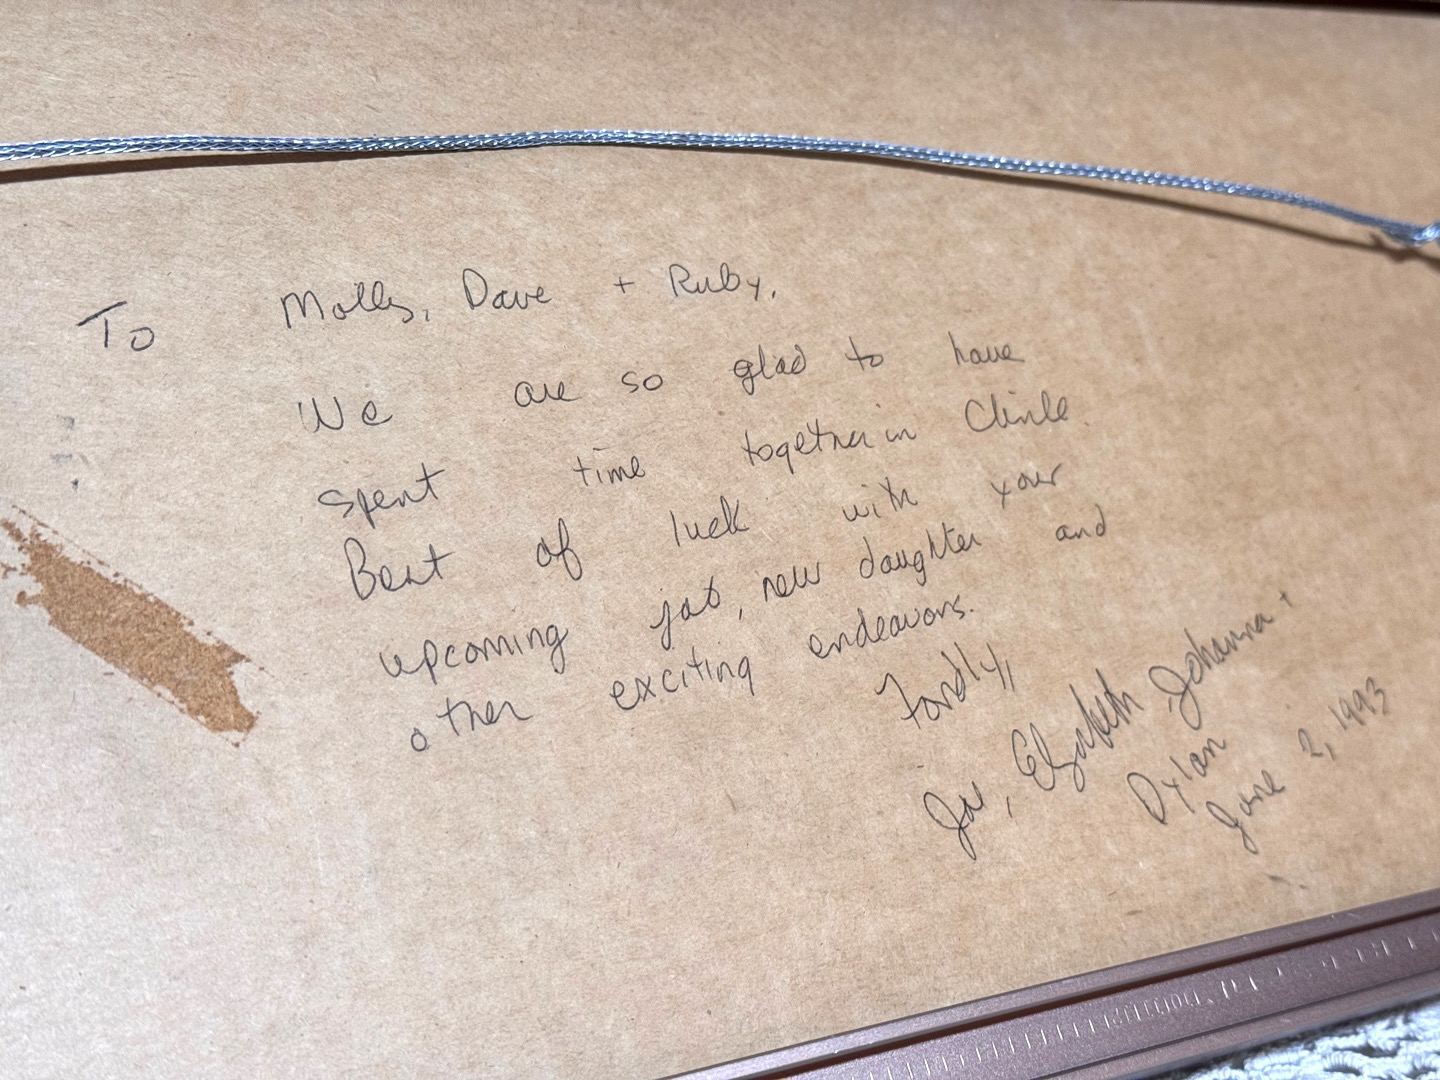 To Molly, Dave + Ruby,
We are so glad to have
spent time together in Chinle.
Best of luck with your
upcoming job, new daughter and
other exciting endeavors.
Fondly,
Joe, Elizabeth Johanna +
Dylan
June 2, 1993